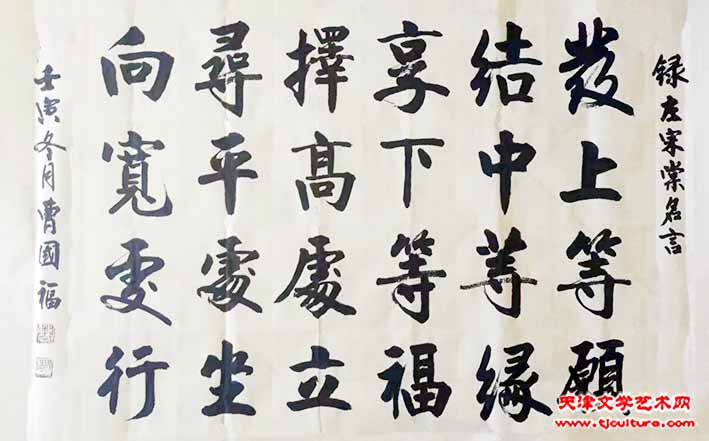 録左宗棠名言
發上等願
結中等緣
享下等福
擇高處立
尋平處坐
向寬處行
壬寅冬月曹國福
天津文学艺术网
www.tjculture.com